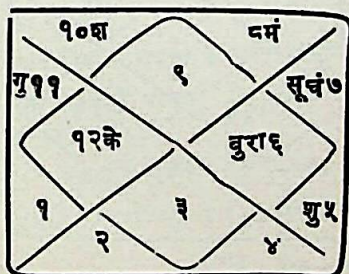 १०श ८मं
९
गु११ सूचं७
१२के वुरा६
१ ३ शु५
२ ४